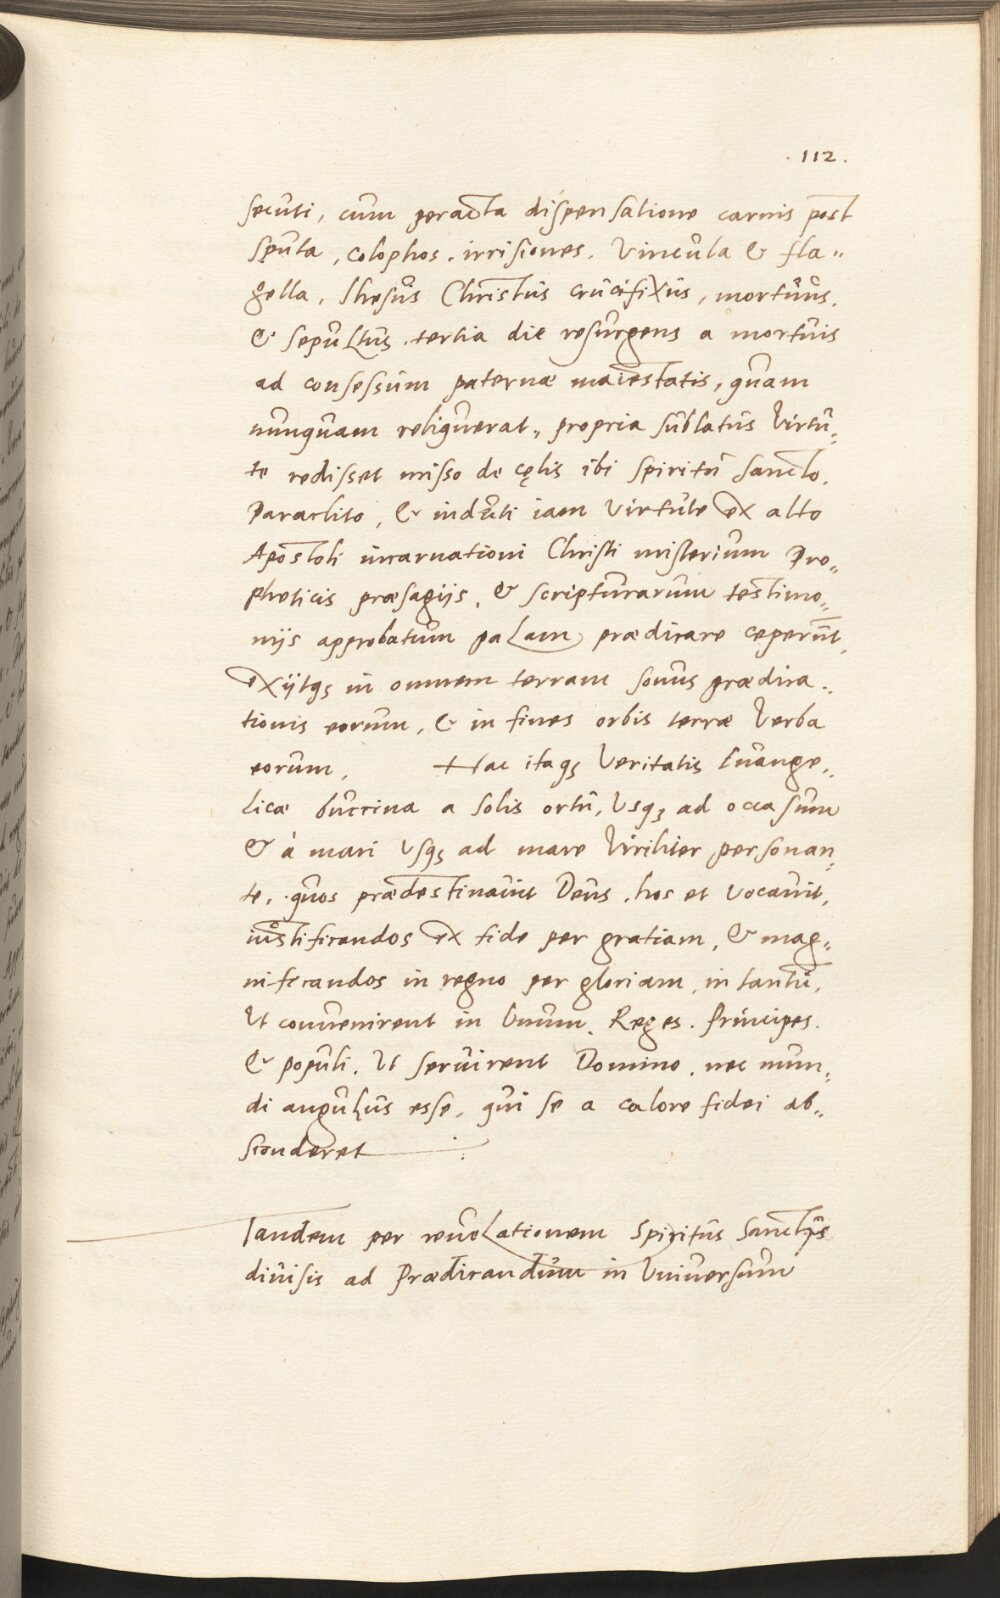 .112.
secuti, cum peracta dispensatione carnis post
sputa, colophos, irrisiones, Vincula & fla„
gella, Ihesus Christus crucifixus, mortuus,
& sepultus, tertia die resurgens a mortuis
ad consessum paternæ maiestatis, quam
nunquam reliquerat, propria sublatus Virtu„
te redisset misso de cęlis ibi spiritu sancto,
Paraclito, & induti iam Virtute ex alto
Apostoli incarnationi Christi misterium Pro„
pheticis præsagijs, & scripturarum testimo„
nijs approbatum palam prædicare ceperũt,
exijtqȝ in omnem terram sonus prædica„
tionis eorum, & in fines orbis terræ Verba
eorum. Hac itaqȝ Veritatis Euange„
licæ buccina a solis ortu, Usqȝ ad occasum
& à mari Usqȝ ad mare Viriliter personan„
te, quos prædestinauit Deus, hos et vocauit,
iustificandos ex fide per gratiam, & mag„
nificandos in regno per gloriam, in tantũ,
Ut conuenirent in Unum, Reges, Principes,
& populi, Ut seruirent Domino, nec mun„
di angulus esse, qui se a calore fidei ab„
sconderet
Tandem per reuelationem Spiritus Sanctus
diuisis ad Prædicandum in Uniuersum